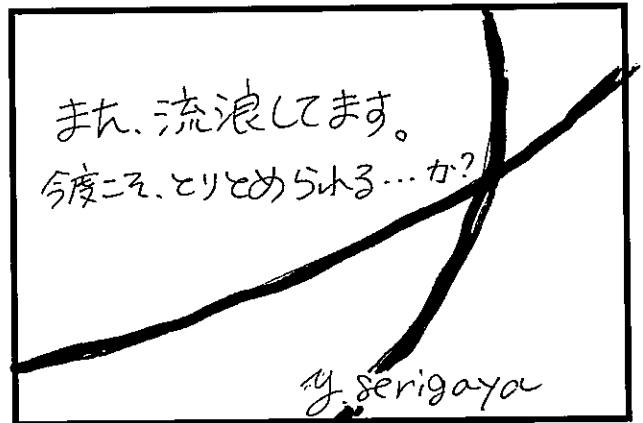 また、流浪してます。
今度こそ、とりとめられる…か?
y.serigaya